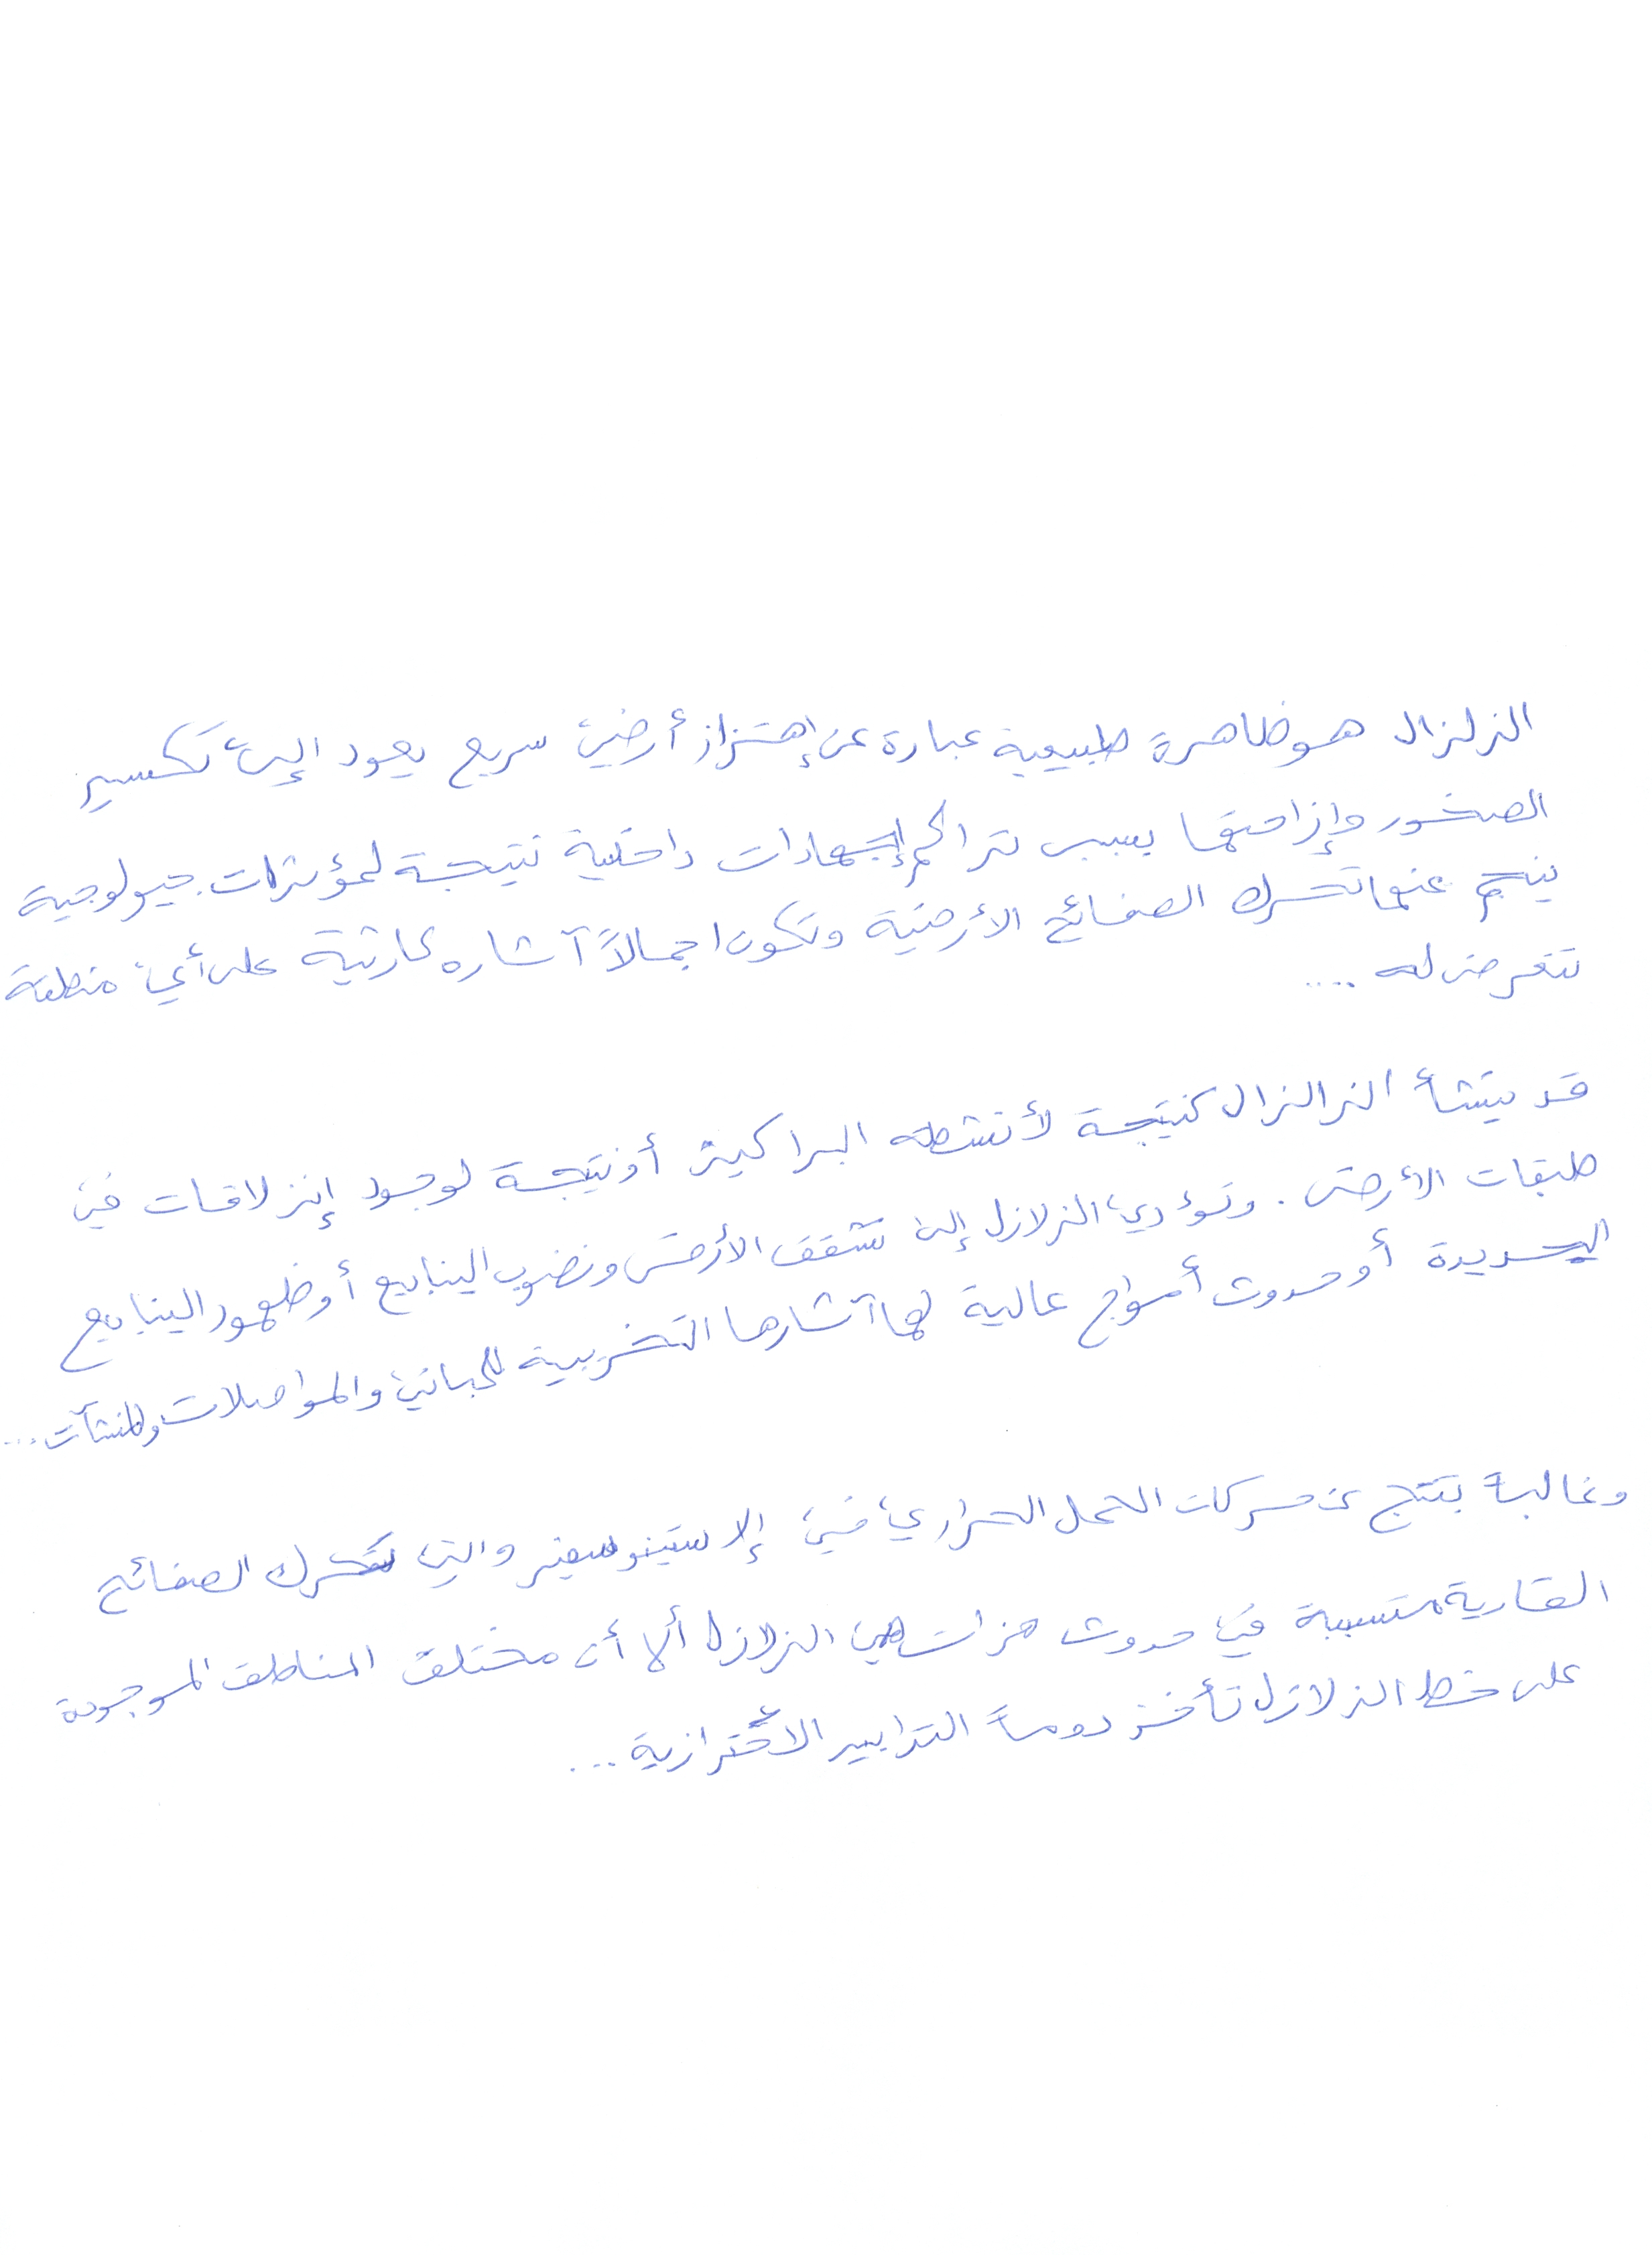 الزلزال هو ظاهرة طبيعية عبارة عن إهتزاز أرضي سريع يعود إلى تكسير
الصخور وإزاحتها بسبب تراكم إجهادات داخلية نتيجة لمؤثرات جيولوجية
ينجم عنها تحرك الصفائح الأرضية وتكون اجمالاً آثاره كارثية على أي منطقة
تتعرض له ....
قد ينشأ الزالزال كنتيجة لأنشطة البراكين أو نتيجة لوجود إنزلاقات في
طبقات الأرض . وتؤدي الزلازل إلى تشقق الأرض ونضوب الينابيع أو ظهور الينابيع
الجديدة أو حدوث أمواج عالية لها آثارها التخريبية للمباني والمواصلات والمنشآت ...
وغالباً ينتج عن حركات الحمل الحراري في إلاستينوسفير والتي تحرك الصفائح
القارية متسببة في حدوث هزات هي الزلازل ألا أن مختلف المناطق الموجودة
على خط الزلازل تأخذ دوماً التدابير الاحترازية ...